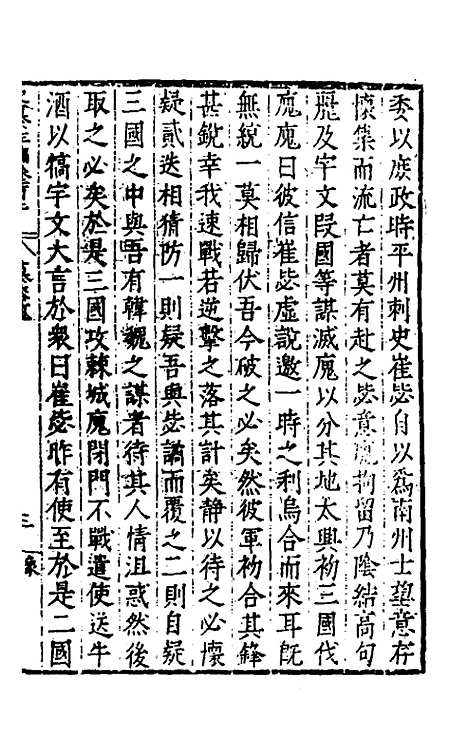 委以庶政時平州刺史崔毖自以爲南州士望意存
懷集而流亡者莫有赴之毖意廆拘留乃陰結高句
麗及宇文段國等謀滅廆以分其地太興初三國伐
廆廆曰彼信崔毖虛說邀一時之利烏合而來耳旣
無統一莫相歸伏吾今破之必矣然彼軍初合其鋒
甚銳幸我速戰若逆擊之落其計矣靜以待之必懷
疑貳迭相猜防一則疑吾與毖譎而覆之二則自疑
三國之中與吾有韓魏之謀者待其人情沮惑然後
取之必矣於是三國攻棘城廆閉門不戰遣使送牛
酒以犒宇文大言於衆曰崔毖昨有使至於是二國
三